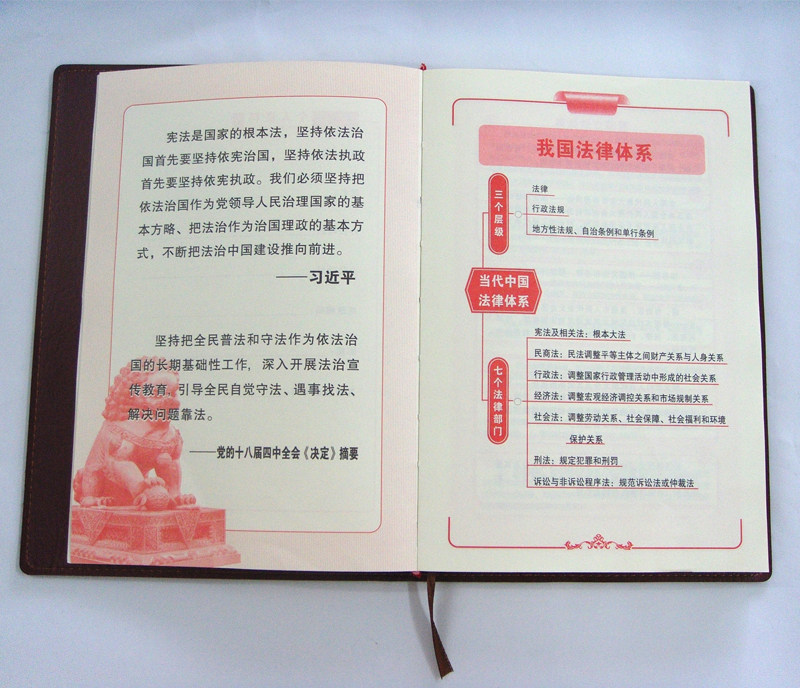 宪法是国家的根本法，坚持依法治
国首先要坚持依宪治国，坚持依法执政
首先要坚持依宪执政。我们必须坚持把
依法治国作为党领导人民治理国家的基
本方略、把法治作为治国理政的基本方
式，不断把法治中国建设推向前进。
——习近平
坚持把全民普法和守法作为依法治
国的长期基础性工作，深入开展法治宣
传教育，引导全民自觉守法、遇事找法、
解决问题靠法。
——党的十八届四中全会《决定》摘要
我国法律体系
三个层级
法律
行政法规
地方性法规、自治条例和单行条例
当代中国
法律体系
七个法律部门
宪法及相关法：根本大法
民商法：民法调整平等主体之间财产关系与人身关系
行政法：调整国家行政管理活动中形成的社会关系
经济法：调整宏观经济调控关系和市场规制关系
社会法：调整劳动关系、社会保障、社会福利和环境
保护关系
刑法：规定犯罪和刑罚
诉讼与非诉讼程序法：规范诉讼法或仲裁法